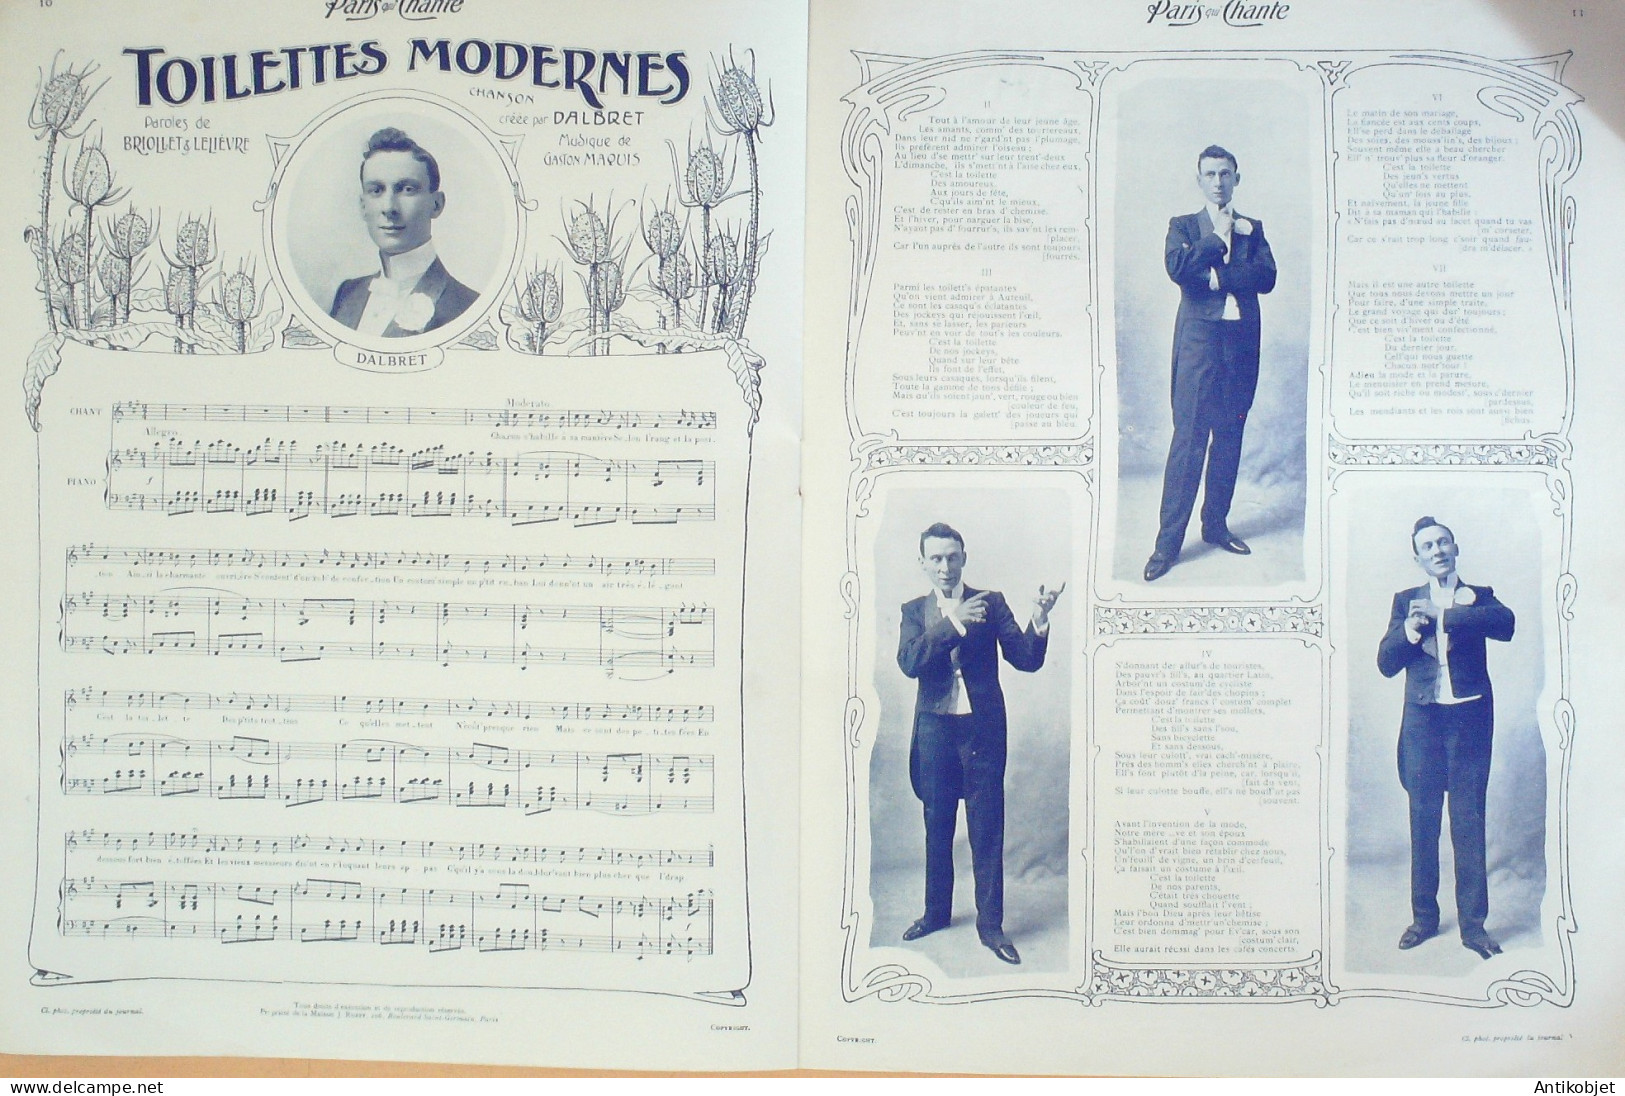 10
Paris qui Chante
TOILETTES MODERNES
CHANSON
créée par DALBRET
Paroles de
BRIOLLET & LELIÈVRE
Musique de
GASTON MAQUIS
DALBRET
CHANT
Moderato
Chacun s'habille à sa manière Se_lon l'rang et la posi_
Allegro
PIANO
_tion Ain_si la charmante ouvrière
Un costum' simple un p'tit ru_ban Lui donn'nt un air très é_lé_gant
C'est la toi_let_te Des p'tits trot_tins Ce qu'elles met_tent N'coût' presque rien Mais ce sont des pe_ti_tes fées En
dessous fort bien é_toffées Et les vieux messieurs
leurs ap_pas
Cl. phot. propriété du journal.
Tous droits d'exécution et de reproduction réservés.
Boulevard Saint-Germain, Paris.
COPYRIGHT.
Paris qui Chante
11
II
Tout à l'amour de leur jeune âge,
Les amants, comm' des tourtereaux,
Dans leur nid ne r'gard'nt pas l'plumage,
Ils préfèrent admirer l'oiseau ;
Au lieu d'se mettr' sur leur trent'-deux
L'dimanche, ils s'mett'nt à l'aise chez eux,
C'est la toilette
Des amoureux,
Aux jours de fête,
C'qu'ils aim'nt le mieux,
C'est de rester en bras d'chemise.
Et l'hiver, pour narguer la bise,
N'ayant pas d'fourrur's, ils sav'nt les rem-
[placer,
Car l'un auprès de l'autre ils sont toujours
[fourrés.
III
Parmi les toilett's épatantes
Qu'on vient admirer à Auteuil,
Ce sont les casaqu's éclatantes
Des jockeys qui réjouissent l'œil,
Et, sans se lasser, les parieurs
Peuv'nt en voir de tout's les couleurs.
C'est la toilette
De nos jockeys,
Quand sur leur bête
Ils font de l'effet,
Sous leurs casaques, lorsqu'ils filent,
Toute la gamme de tons défile ;
Mais qu'ils soient jaun', vert, rouge ou bien
[couleur de feu,
C'est toujours la galett' des joueurs qui
[passe au bleu.
IV
S'donnant des allur's de touristes,
Des pauvr's fill's, au quartier Latin,
Arbor'nt un costum' de cycliste
Dans l'espoir de fair' des chopins ;
Ça coût' douz' francs l'costum' complet
Permettant d'montrer ses mollets,
C'est la toilette
Des fill's sans l'sou,
Sans bicyclette
Et sans dessous,
Sous leur culott', vrai cach'-misère,
Près des homm's elles cherch'nt à plaire,
Ell's font plutôt d'la peine, car, lorsqu'il
[fait du vent,
Si leur culotte bouffe, ell's ne bouff'nt pas
[souvent.
V
Avant l'invention de la mode,
Notre mère Ève et son époux
S'habillaient d'une façon commode
Qu'l'on d'vrait bien rétablir chez nous,
Un'feuill' de vigne, un brin d'cerfeuil,
Ça faisait un costume à l'œil.
C'est la toilette
De nos parents,
C'était très chouette
Quand soufflait l'vent ;
Mais l'bon Dieu après leur bêtise
Leur ordonna d'mettr'un'chemise ;
C'est bien dommag' pour Ev'car, sous son
[costum'clair,
Elle aurait réussi dans les cafés concerts.
VI
Le matin de son mariage,
La fiancée est aux cents coups,
Ell'se perd dans le déballage
Des soies, des mouss'lin's, des bijoux ;
Souvent même elle a beau chercher
Ell' n' trouv' plus sa fleur d'oranger.
C'est la toilette
Des jeun's vertus
Qu'elles ne mettent
Qu'un' fois au plus,
Et naïvement, la jeune fille
Dit à sa maman qui l'habille :
« N'fais pas d'nœud au lacet quand tu vas
[m' corseter,
Car ce s'rait trop long c'soir quand fau-
[dra m'délacer. »
VII
Mais il est une autre toilette
Que tous nous devons mettre un jour
Pour faire, d'une simple traite,
Le grand voyage qui dur' toujours ;
Que ce soit d'hiver ou d'été
C'est bien viv'ment confectionné,
C'est la toilette
Du dernier jour,
Cell'qui nous guette
Chacun notr'tour !
Adieu la mode et la parure,
Le menuisier en prend mesure,
Qu'il soit riche ou modest', sous c'dernier
[pardessus,
Les mendiants et les rois sont aussi bien
[fichus.
COPYRIGHT.
Cl. phot. propriété du journal
Antikobjet